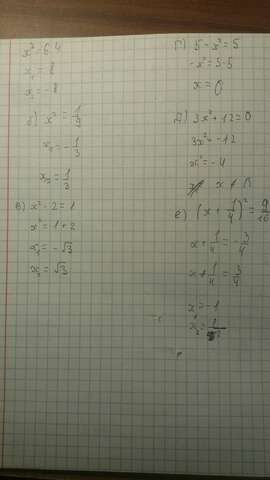 x² = 64
x₁ = 8
x₂ = -8
б) x² = 1/9
x₁ = -1/3
x₂ = 1/3
в) x² - 2 = 1
x² = 1 + 2
x₁ = -√3
x₂ = √3
г) 5 - x² = 5
-x² = 5-5
x = 0
д) 3x² + 12 = 0
3x² = -12
x² = -4
е) (x + 1/4)² = 9/16
x + 1/4 = -3/4
x + 1/4 = 3/4
x = -1